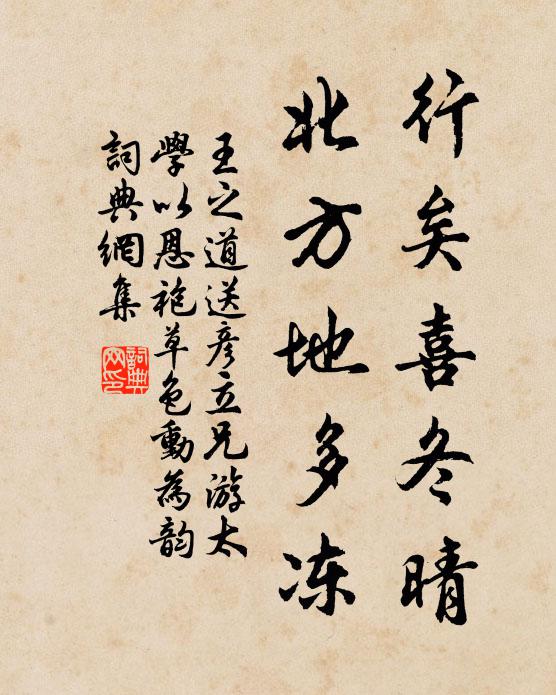 行矣喜冬晴
北方地多冻
王之道送彦立兄游太
學以恩袍草色動為韵
詞典網集
詞典网印